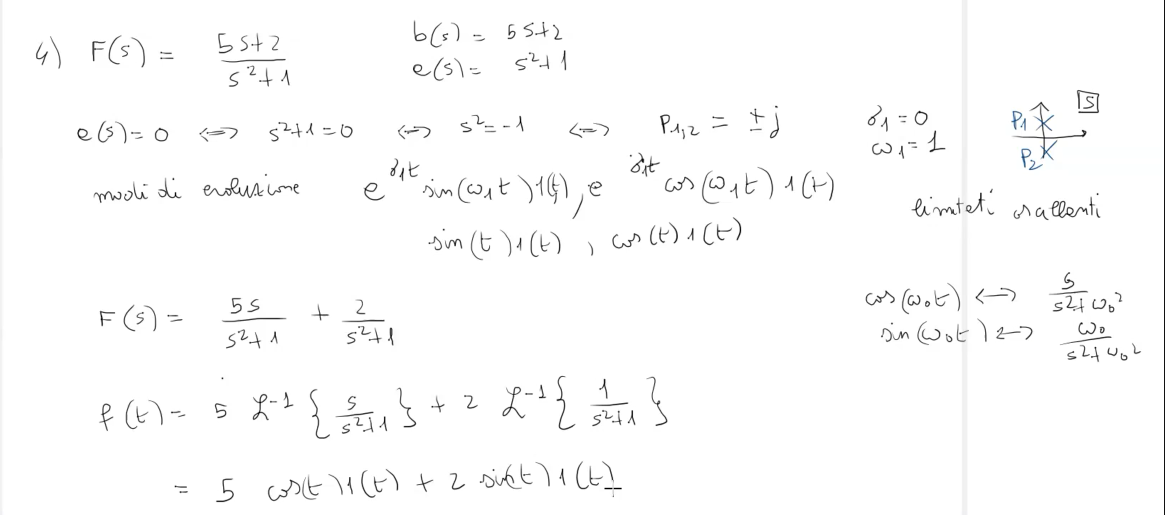 4) F(s) = (5s+2)/(s²+1)   b(s) = 5s+2
e(s) = s²+1
e(s)=0 ⟺ s²+1=0 ⟺ s²=-1 ⟺ P1,2 = ±j   σ1=0   P1   S
ω1=1   P2
modi di evoluzione   e^(σ1t) sin(ω1t)1(t), e^(σ1t) cos(ω1t)1(t)   limitati oscillanti
sin(t)1(t), cos(t)1(t)
F(s) = 5s/(s²+1) + 2/(s²+1)   cos(ω0t) ⟷ s/(s²+ω0²)
sin(ω0t) ⟷ ω0/(s²+ω0²)
f(t) = 5 ℒ⁻¹{s/(s²+1)} + 2 ℒ⁻¹{1/(s²+1)}
= 5 cos(t)1(t) + 2 sin(t)1(t)